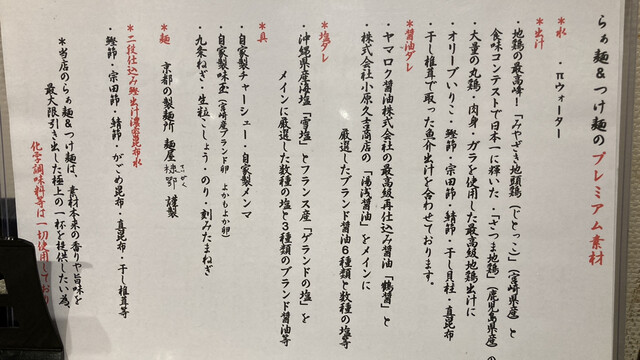 らぁ麺&つけ麺のプレミアム素材
*水
・πウォーター
*出汁
・地鶏の最高峰!「みやざき地頭鶏(じとっこ)」(宮崎県産)と
食味コンテストで日本一に輝いた・「さつま地鶏」(鹿児島県産)の
・大量の丸鶏・肉身・ガラを使用した最高級地鶏出汁に
・オリーブいりこ・鰹節・宗田節・鯖節・干し貝柱・真昆布
・干し椎茸で取った魚介出汁を合わせております。
*醤油ダレ
・ヤマロク醤油株式会社の最高級再仕込み醤油「鶴醤」と
・株式会社小原久吉商店の「湯浅醤油」をメインに
厳選したブランド醤油6種類と数種の塩等
*塩ダレ
・沖縄県産海塩「雪塩」とフランス産「ゲランドの塩」を
メインに厳選した数種の塩と3種類のブランド醤油等
*具
・自家製チャーシュー・自家製メンマ
・自家製味玉(宮崎産ブランド卵 よかもよか卵)
・九条ねぎ・生粒こしょう・のり・刻みたまねぎ
*麺
京都の製麺所 麺屋 棣鄂 謹製
ていがく
*二段仕込み鰹出汁濃密昆布水
・鰹節・宗田節・鯖節・がごめ昆布・真昆布・干し椎茸等
*当店のらぁ麺&つけ麺は、素材本来の香りや旨味を
最大限引き出した極上の一杯を提供したい為、
化学調味料等は一切使用しており